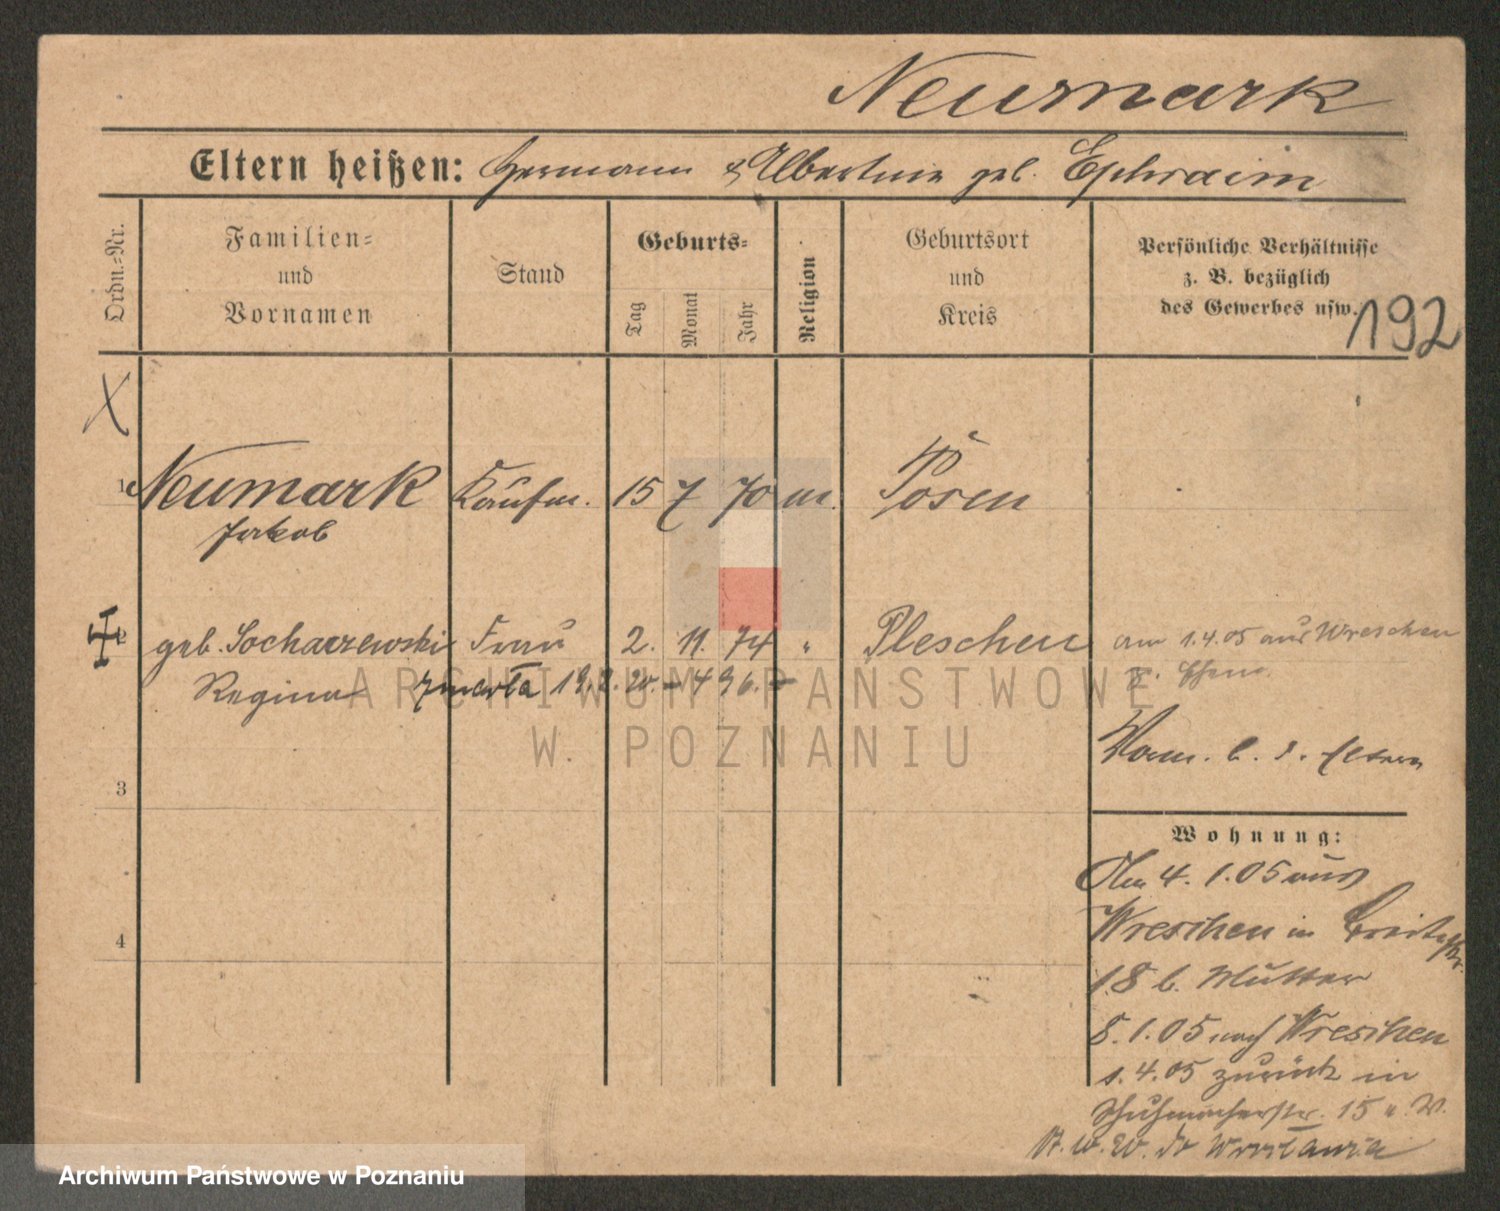 Neumark
Eltern heißen: Hermann & Albertine geb. Ephraim
Ordn.-Nr.
Familien-
und
Vornamen
Stand
Geburts-
Tag
Monat
Jahr
Religion
Geburtsort
und
Kreis
Persönliche Verhältnisse
z. B. bezüglich
des Gewerbes usw.
192
1 Neumark Kaufm. 15 7 70 m. Posen
Jakob
2 geb. Sochaczewski Frau 2. 11. 74 " Pleschen am 1.4.05 aus Wreschen
Regina zmarła 19.2.20.
z. Ehem.
ARCHIWUM PAŃSTWOWE
W POZNANIU
b. d. Eltern
3
Wohnung:
Am 4. 1. 05 aus
Wreschen in Breitestr.
18 b. Mutter
4
8. 1. 05 nach Wreschen
1. 4. 05 zurück in
Schuhmacherstr. 15
Archiwum Państwowe w Poznaniu